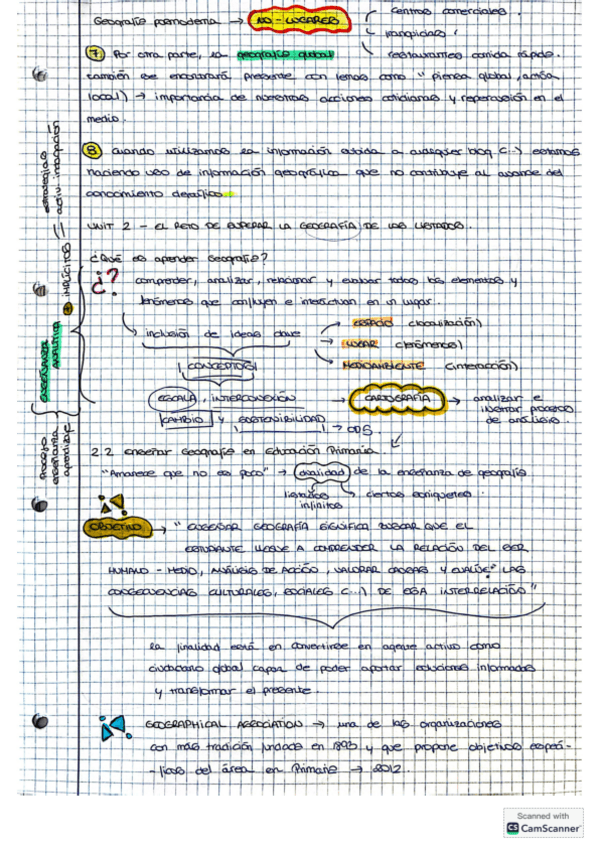 Geografía posmoderna → NO-LUGARES
centros comerciales.
franquicias.
restaurantes comida rápida.
7 Por otra parte, la geografía global
también se encontrará presente con lemas como "piensa global, actúa
local) → importancia de nuestras acciones cotidianas y repercusión en el
medio.
8 Cuando utilizamos la información a cualquier blog (...) estamos
haciendo uso de información geográfica que no contribuye al avance del
conocimiento científico.
UNIT 2 - EL RETO DE SUPERAR LA GEOGRAFÍA DE LOS LISTADOS.
¿Qué es aprender Geografía?
¿? comprender, analizar, relacionar y evaluar todos los elementos y
fenómenos que confluyen e interactúan en un lugar.
inclusión de ideas clave
ESPACIO (localización)
LUGAR (fenómenos)
MEDIOAMBIENTE (interacción)
CONCEPTOS
ESCALA, INTERCONEXIÓN
CAMBIO y SOSTENIBILIDAD → ODS.
CARTOGRAFÍA → analizar e
insertar procesos
de análisis.
2.2 enseñar Geografía en Educación Primaria.
"Amanece que no es poco" → dualidad de la enseñanza de geografía
listados infinitos
ciertos enriqueceres.
OBJETIVO → " ENSEÑAR GEOGRAFÍA SIGNIFICA BUSCAR QUE EL
ESTUDIANTE LLEGUE A COMPRENDER LA RELACIÓN DEL SER
HUMANO - MEDIO, ANÁLISIS DE ACCIÓN, VALORAR CAUSAS Y LAS
CONSECUENCIAS CULTURALES, SOCIALES (...) DE ESA INTERRELACIÓN"
la finalidad está en convertirse en agente activo como
ciudadano global capaz de poder aportar soluciones informadas
y transformar el presente.
GEOGRAPHICAL ASSOCIATION → una de las organizaciones
con más tradición fundada en 1893 y que propone objetivos especí-
-ficos del área en Primaria → 2012.
ENSEÑANZA
ANALÍTICA
IMPLÍCITOS
estrategias
activ. innovación
Proceso
enseñanza
aprendizaje
Scanned with
CS CamScanner